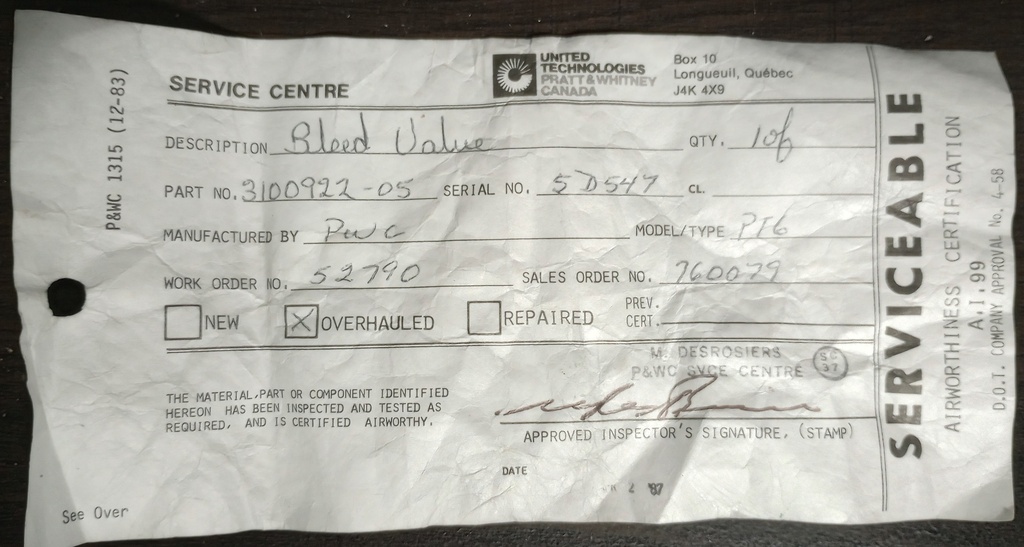 P&WC 1315 (12-83)
SERVICE CENTRE
UNITED
TECHNOLOGIES
PRATT & WHITNEY
CANADA
Box 10
Longueuil, Québec
J4K 4X9
DESCRIPTION Bleed Valve QTY. 1 of
PART NO. 3100922-05 SERIAL NO. 5D547 CL.
MANUFACTURED BY PWC MODEL/TYPE PT6
WORK ORDER NO. 52790 SALES ORDER NO. 760079
NEW X OVERHAULED REPAIRED PREV.
CERT.
M. DESROSIERS
P&WC SVCE CENTRE
SC
37
THE MATERIAL, PART OR COMPONENT IDENTIFIED
HEREON HAS BEEN INSPECTED AND TESTED AS
REQUIRED, AND IS CERTIFIED AIRWORTHY.
APPROVED INSPECTOR'S SIGNATURE, (STAMP)
DATE
4 '87
See Over
SERVICEABLE
AIRWORTHINESS CERTIFICATION
A.I.99
D.O.T. COMPANY APPROVAL No. 4-58